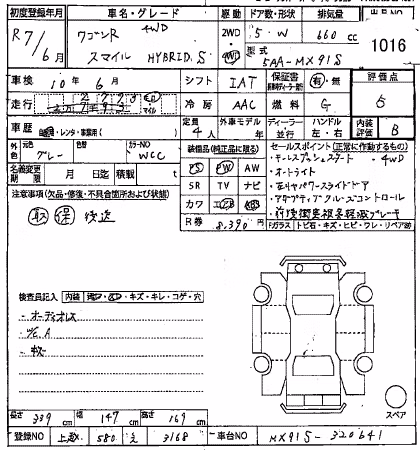 初度登録年月 車名・グレード 駆動 ドア数・形状 排気量 出品NO
R7/6月 ワゴンR 4WD 2WD 5・W 660cc 1016
スマイル HYBRID S 4WD 型式 5AA-MX91S
車検 10年6月 シフト IAT 保証書 有・無 評価点
走行 km マイル 冷房 AAC 燃料 G 5
車歴 ・レンタ・事業用( ) 定員 4人 外車モデル年 ディーラー・並行 ハンドル 左・右 内装評価 B
外色 元色 グレー 色替 カラーNO WCC 装備品(純正品に限る) セールスポイント(正常に作動するもの)
・キーレスプッシュスタート ・4WD
名義変更期限 月 日迄 積載 t PS PW AW ・オートライト
注意事項(欠品・修復・不具合箇所および状態) SR TV ナビ ・左右パワースライドドア
取 保 後送 カワ エアB ABS ・アダプティブクルーズコントロール
R券 8,390円 ・前後衝突被害軽減ブレーキ
『ガラス』トビ石・キズ・ヒビ・ワレ・リペア跡
検査員記入 内装 ・キズ・キレ・コゲ・穴
・オーディオレス
・内E.A
スペア
長さ 339cm 幅 147cm 高さ 169cm
登録NO 580 え 3168 車台NO MX91S-320641